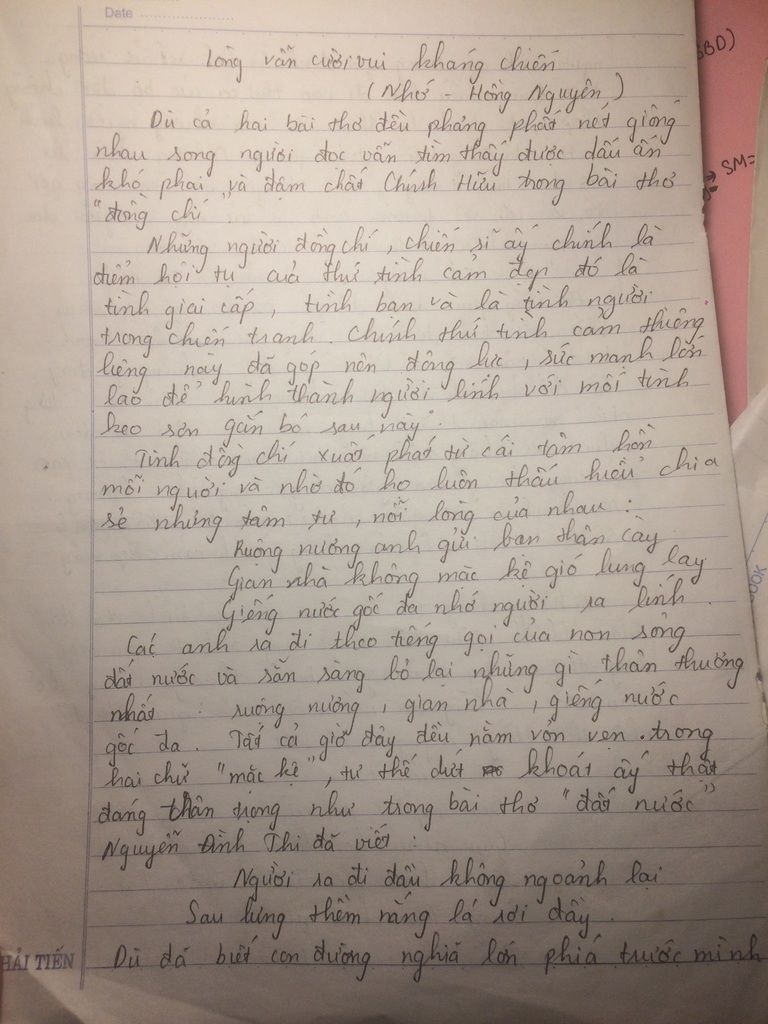 Date
Lòng vẫn cười vui kháng chiến
(Nhớ - Hồng Nguyên)
BD)
SM=
Dù cả hai bài thơ đều phảng phất nét giống
nhau song người đọc vẫn tìm thấy được dấu ấn
khó phai và đậm chất Chính Hữu trong bài thơ
"đồng chí".
Những người đồng chí, chiến sĩ ấy chính là
điểm hội tụ của thứ tình cảm đẹp đó là
tình giai cấp, tình bạn và là tình người
trong chiến tranh. Chính thứ tình cảm thiêng
liêng này đã góp nên động lực, sức mạnh lớn
lao để hình thành người lính với mối tình
keo sơn gắn bó sau này.
Tình đồng chí xuất phát từ cái tâm hồn
mỗi người và nhờ đó họ luôn thấu hiểu chia
sẻ những tâm tư, nỗi lòng của nhau:
Ruộng nương anh gửi bạn thân cày
Gian nhà không mặc kệ gió lung lay
Giếng nước gốc đa nhớ người ra lính.
Các anh ra đi theo tiếng gọi của non sông
đất nước và sẵn sàng bỏ lại những gì thân thương
nhất: ruộng nương, gian nhà, giếng nước
gốc đa. Tất cả giờ đây đều nằm vỏn vẹn trong
hai chữ "mặc kệ", tư thế dứt khoát ấy thật
đáng trân trọng như trong bài thơ "đất nước"
Nguyễn Đình Thi đã viết:
Người ra đi đầu không ngoảnh lại
Sau lưng thềm nắng lá rơi đầy.
HẢI TIẾN
Dù đã biết con đường nghĩa lớn phía trước mình